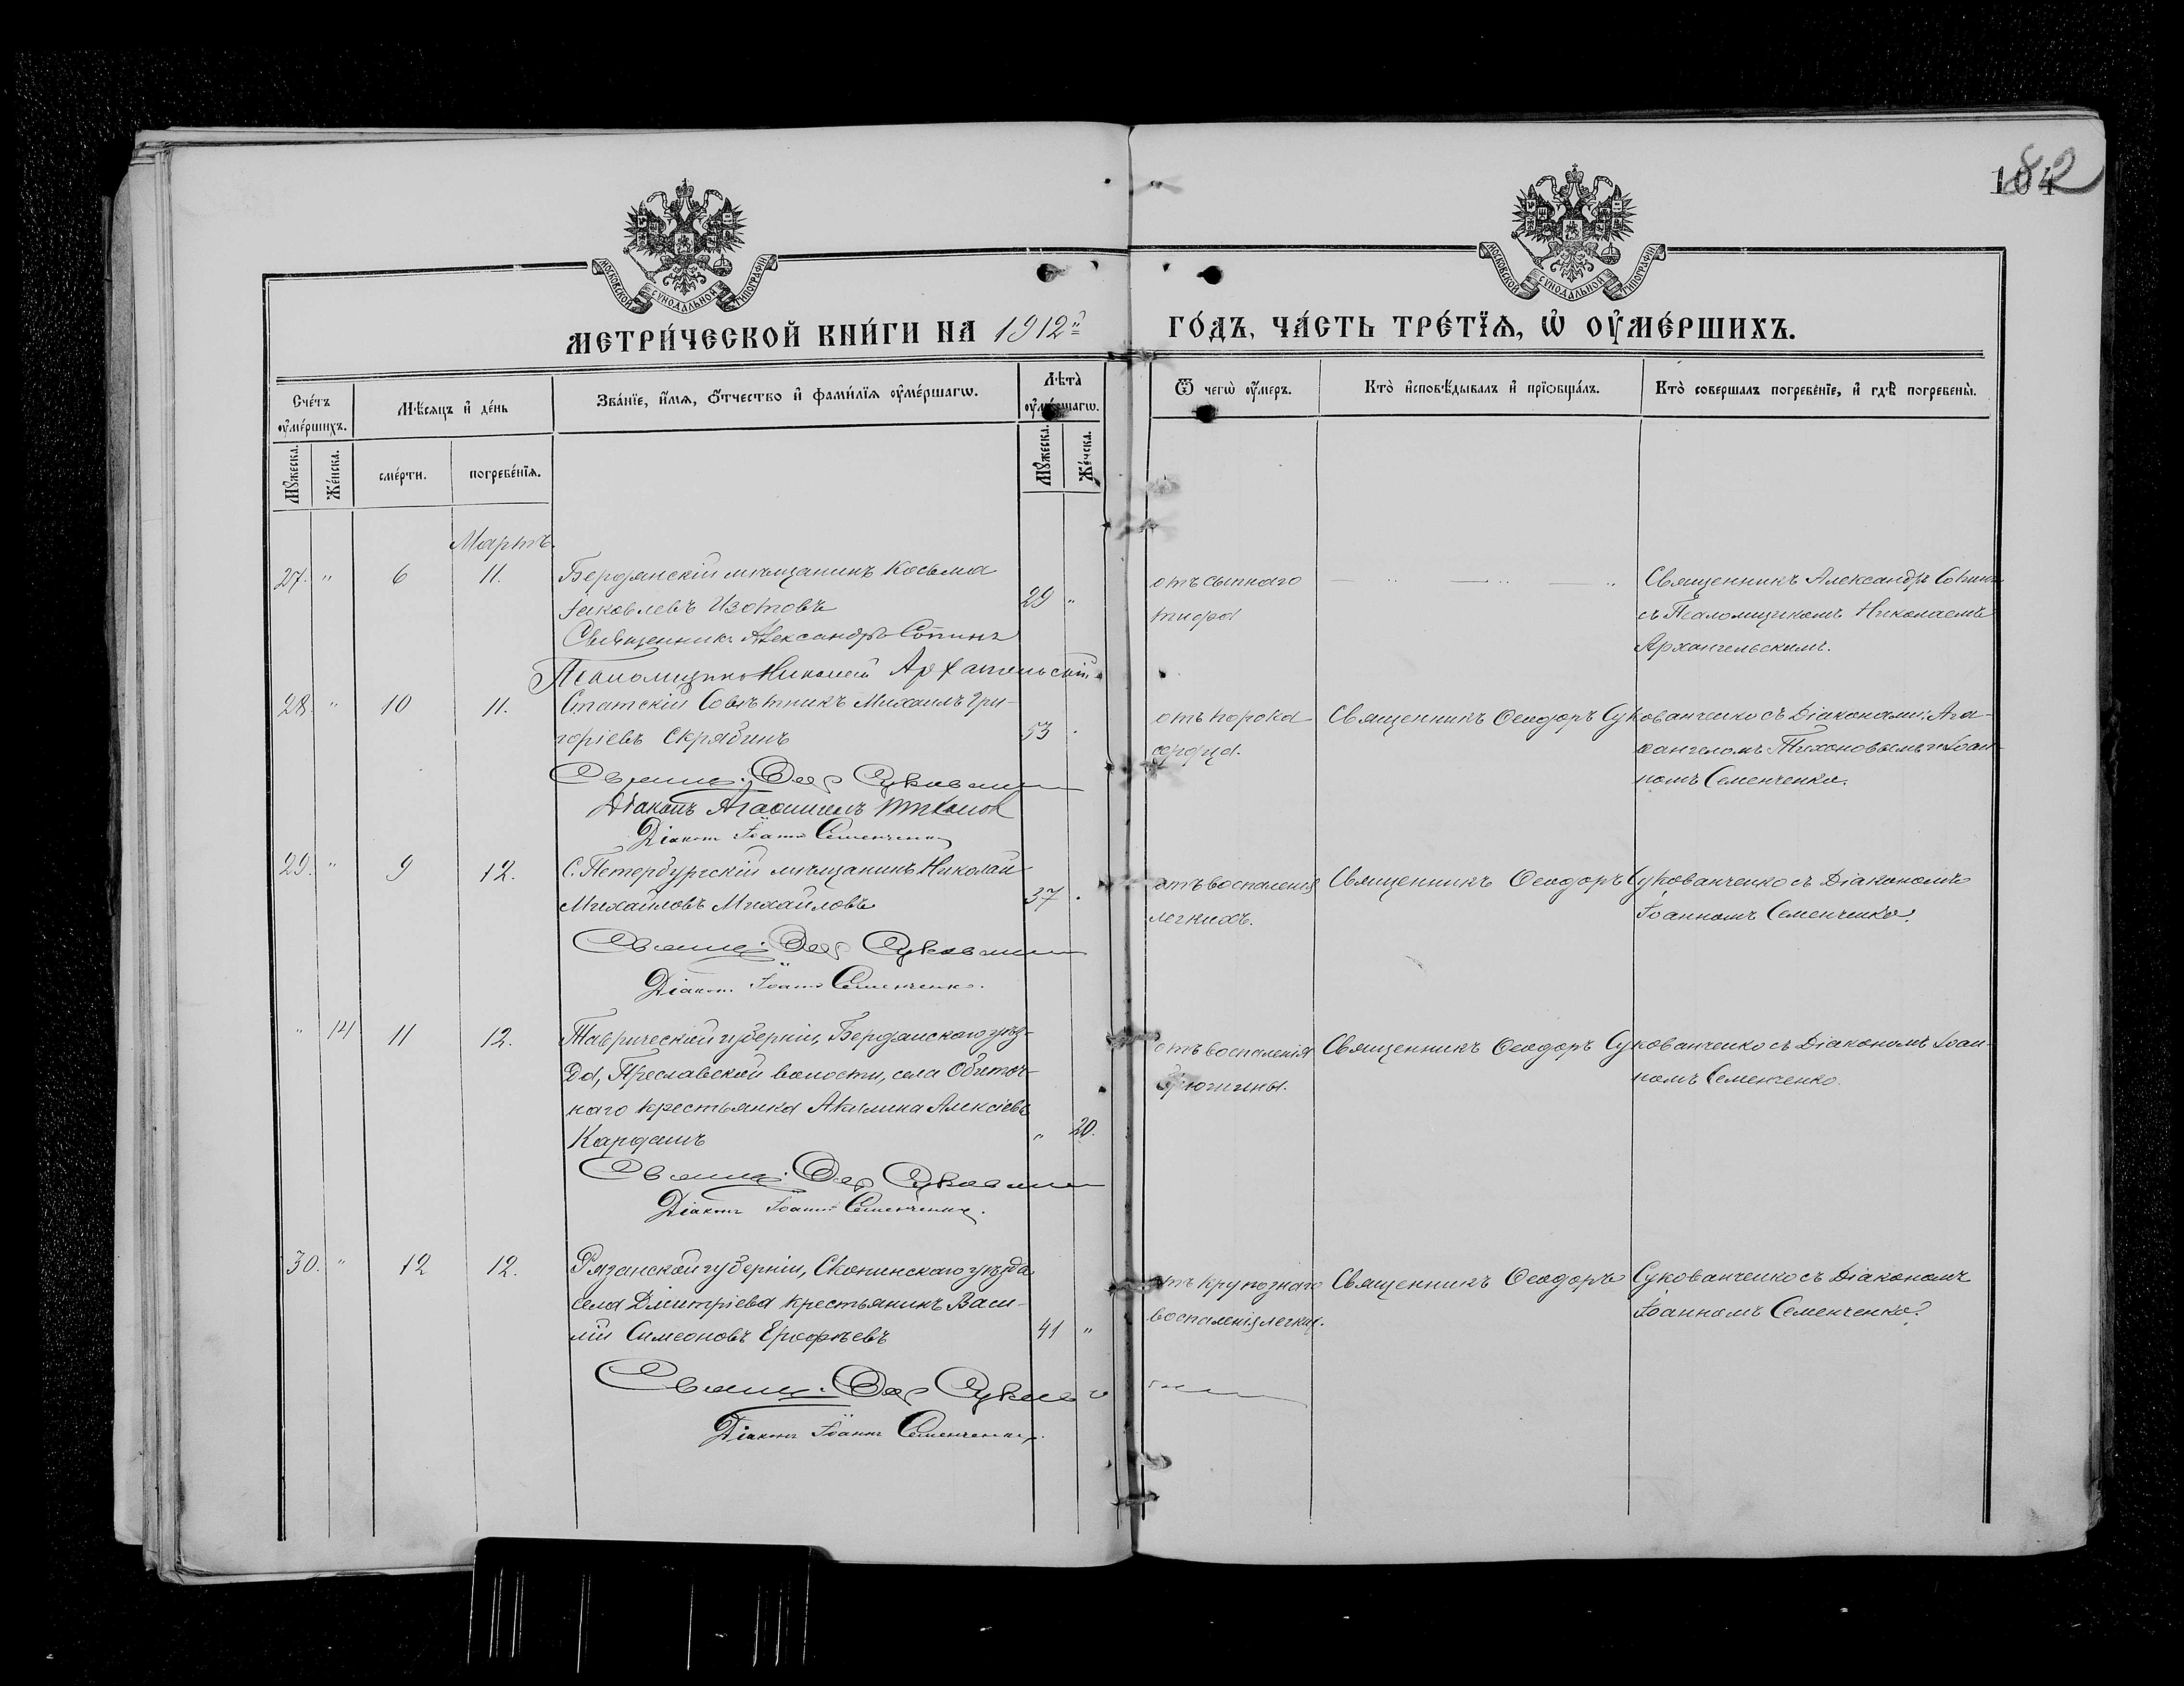 182
104
МОСКОВСКОЙ СѴНОДАЛЬНОЙ ТИПОГРАФІИ
МОСКОВСКОЙ СѴНОДАЛЬНОЙ ТИПОГРАФІИ
МЕТРИ́ЧЕСКОЙ КНИ́ГИ НА 1912й ГО́ДЪ, ЧА́СТЬ ТРЕ́ТЇѦ, Ѡ҆ ОУ҆МЕ́РШИХЪ.
Сче́тъ оу҆ме́ршихъ.
Мѣ́сяцъ и҆ де́нь
Зва́нїе, и҆́мѧ, ѻ҆́тчество и҆ фами́лїѧ оу҆ме́ршагѡ.
Лѣта̀ оу҆ме́ршагѡ.
Ѿ чегѡ̀ оу҆́меръ.
Кто̀ и҆сповѣ́дывалъ и҆ прїѡбща́лъ.
Кто̀ соверша́лъ погребе́нїе, и҆ гдѣ̀ погребены̀.
Мꙋ́жеска.
Же́нска.
сме́рти.
погребе́нїѧ.
Мꙋ́жеска.
Же́нска.
Мартъ.
27. " 6 11. Бердянскій мѣщанинъ Косьма
Іаковлевъ Изотовъ 29 "
Священникъ Александръ Сопинъ
Псаломщикъ Николай Архангельскій
отъ сыпнаго
тифа
Священникъ Александръ Сопинъ
съ Псаломщикомъ Николаемъ
Архангельскимъ.
28. " 10 11. Статскій Совѣтникъ Михаилъ Гри-
горіевъ Скрябинъ 53
Свящ. Ѳеод Сукован
Діаконъ Агаѳангелъ Тихонов
Діаконъ Іоаннъ Семенченко
отъ порока
сердца.
Священникъ Ѳеодоръ Сукованченко съ Діаконами: Ага-
ѳангеломъ Тихоновымъ и Іоан-
номъ Семенченко.
29. " 9 12. С. Петербургскій мѣщанинъ Николай
Михайловъ Михайловъ 37
Свящ. Ѳеод Сукован
Діаконъ Іоаннъ Семенченко.
отъ воспаленія
легкихъ.
Священникъ Ѳеодоръ Сукованченко съ Діакономъ
Іоанномъ Семенченко.
" 14 11 12. Таврической губерніи, Бердянскаго уѣз-
да, Преславской волости, села Обиточ-
наго крестьянка Акилина Алексіева
Кардашъ " 20.
Свящ. Ѳеод Сукован
Діаконъ Іоаннъ Семенченко.
отъ воспаленія
брюшины.
Священникъ Ѳеодоръ Сукованченко съ Діакономъ Іоан-
номъ Семенченко.
30. " 12 12. Рязанской губерніи, Скопинскаго уѣзда
села Дмитріева крестьянинъ Васи-
лій Симеоновъ Ерофѣевъ 41 "
Свящ. Ѳеод Сукован
Діаконъ Іоаннъ Семенченко.
отъ крупознаго
воспаленія легких.
Священникъ Ѳеодоръ Сукованченко съ Діакономъ
Іоанномъ Семенченко.